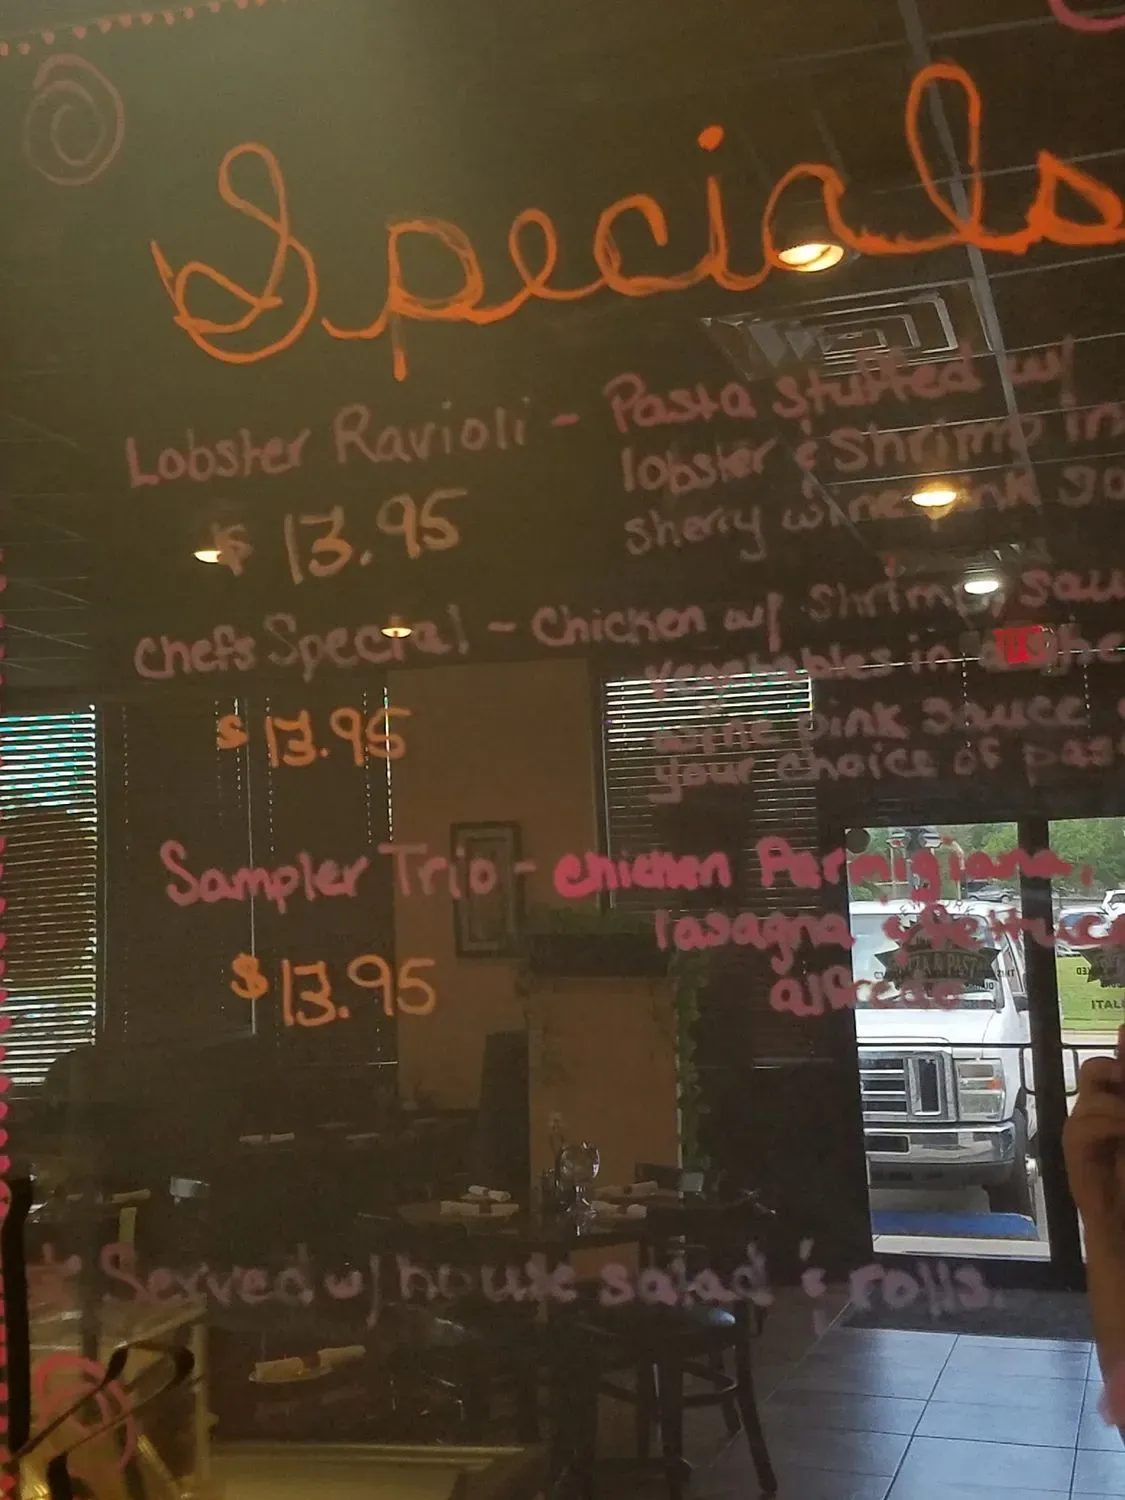 Specials
Lobster Ravioli - Pasta stuffed w/
lobster & Shrimp in
$ 13.95
sherry wine pink
Chefs Special - Chicken w/ Shrimp,
vegetables in a
$ 13.95
wine pink sauce
your choice of
Sampler Trio - chicken Parmigiana,
lasagna &
$13.95
alfredo
* Served w/ house salad & rolls.